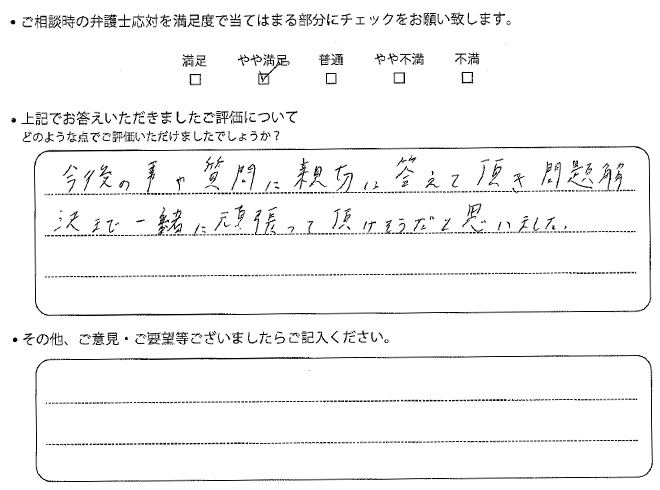 • ご相談時の弁護士応対を満足度で当てはまる部分にチェックをお願い致します。
満足 やや満足 普通 やや不満 不満
□ ☑ □ □ □
• 上記でお答えいただきましたご評価について
どのような点でご評価いただけましたでしょうか？
今後の事や質問に親切に答えて頂き問題解
決まで一緒に頑張って頂けそうだと思いました。
• その他、ご意見・ご要望等ございましたらご記入ください。